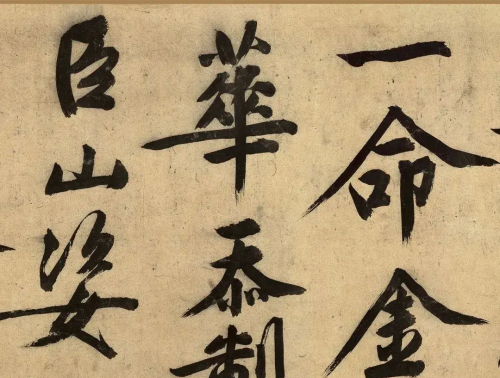 一命金
華忝制
臣山姿